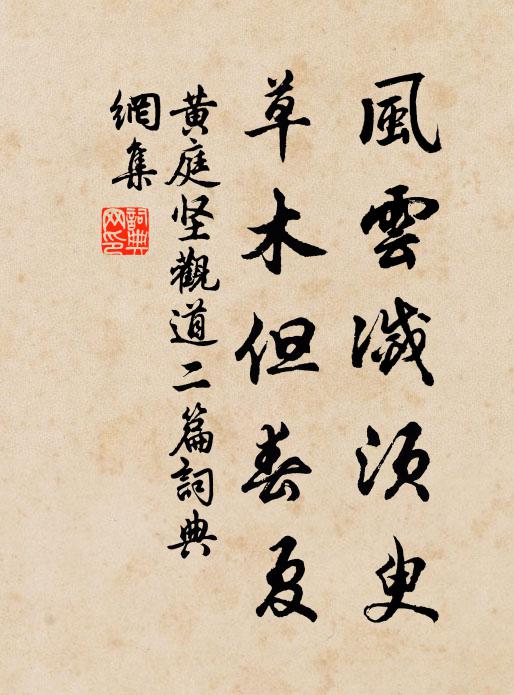 風雲滅須臾
草木但春夏
黄庭坚觀道二篇詞典
網集
詞典网印